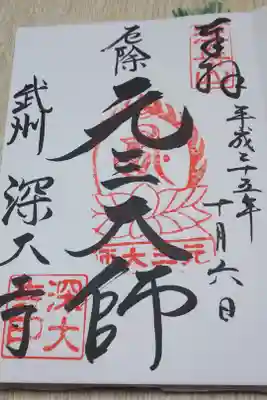 奉拝
平成二十五年
十月六日
厄除
元三大師
武州
深大寺
元三大師